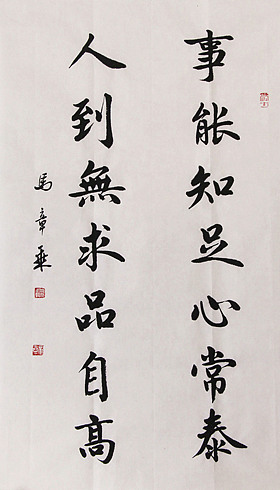 事能知足心常泰
人到無求品自高
馬章乘